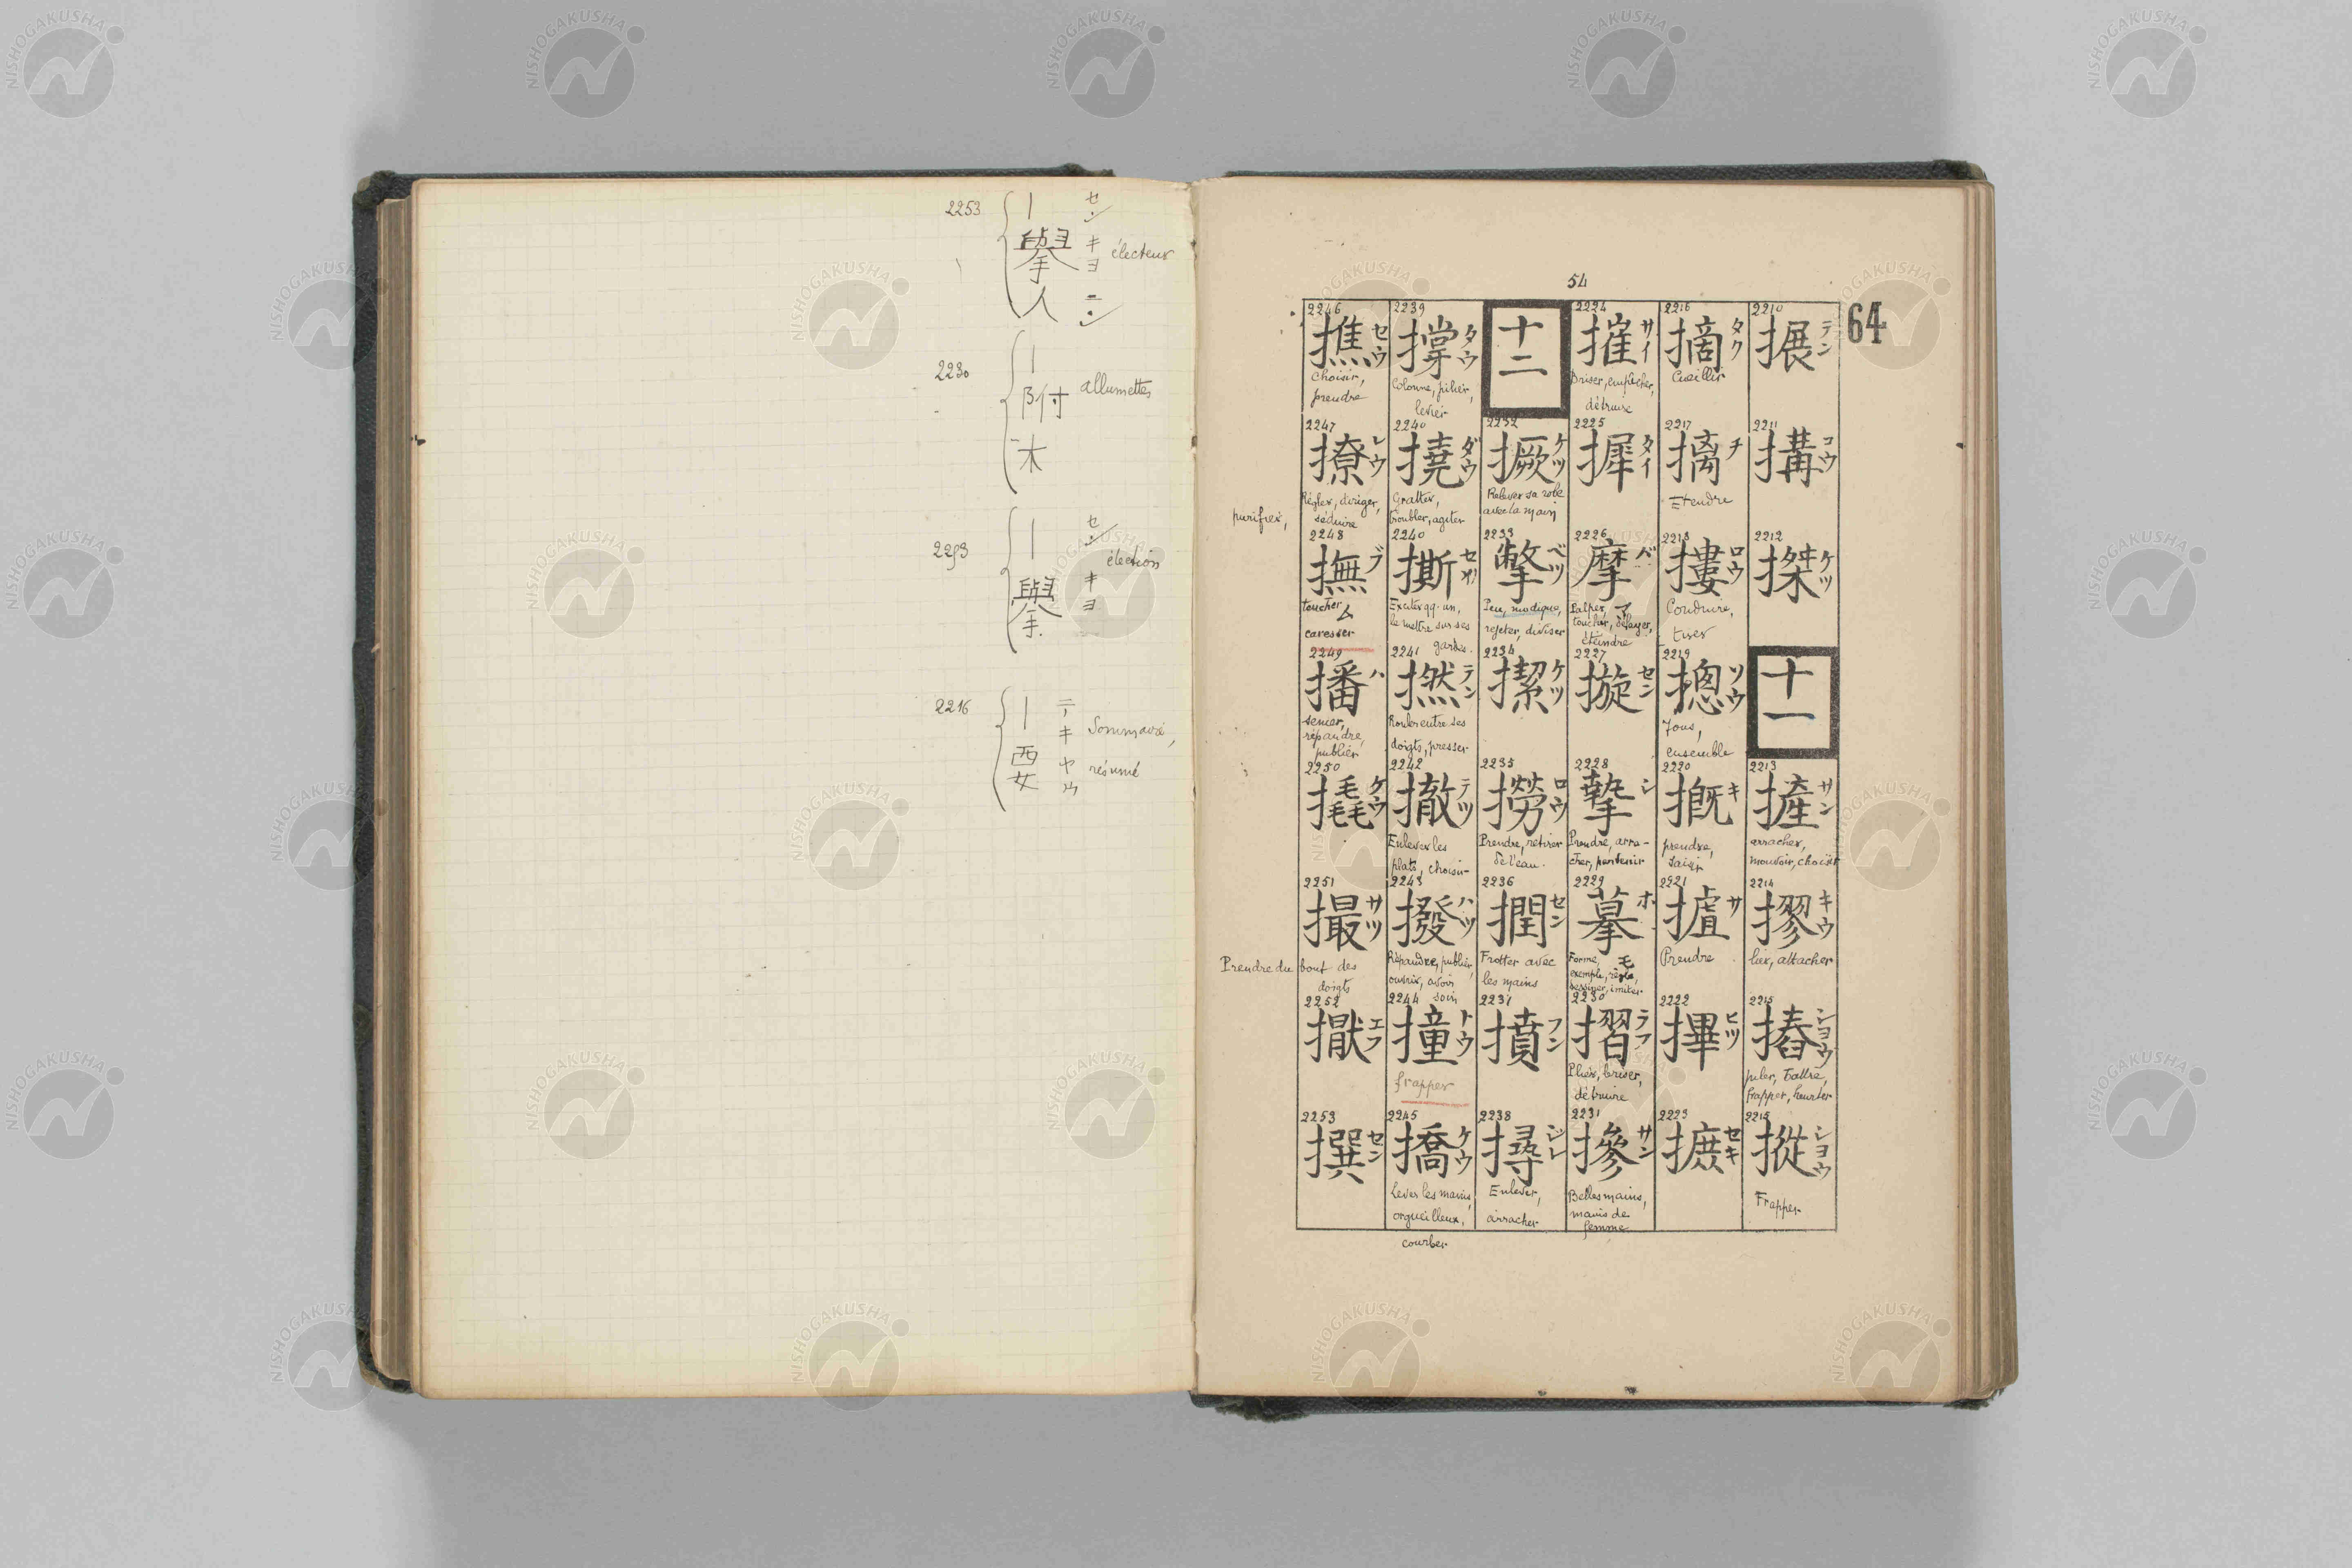 2253
｜ セン
擧 キヨ électeur
人 ニン
2230
｜
附 allumettes
木
2253
｜ セン
擧 キヨ élection
2216
｜ テキ Sommaire,
要 ヤウ résumé
54
64
2210
搌 テン
2211
搆 コウ
2212
搩 ケツ
十一
2213
摌 サン
arracher,
mouvoir, choisir
2214
摎 キウ
lier, attacher
2215
摏 シヨウ
piler, battre,
frapper, heurter
2215
摐 シヨウ
Frapper
2216
摘 タク
Cueillir
2217
摛 チ
Etendre
2218
摟 ロウ
Conduire,
tirer
2219
摠 ソウ
Tous,
ensemble
2220
摡 キ
prendre,
saisir
2221
摣 サ
Prendre
2222
㩛 ヒツ
2223
摭 セキ
2224
摧 サイ
Briser, empêcher,
détruire
2225
摨 タイ
2226
摩 バ
Palper, マ
toucher, délayer,
éteindre
2227
摙 セン
2228
摯 シ
Prendre, arra-
cher, parvenir
2229
摹 ホ
Forme, モ
exemple, règle,
dessiner, imiter
2230
摺 ラフ
Plier, briser,
détruire
2231
摻 サン
Belles mains,
mains de
femme
十二
2232
撅 ケツ
Relever sa robe
avec la main
2233
撆 ベツ
Peu, modique,
rejeter, diviser
2234
㓗 ケツ
2235
撈 ロウ
Prendre, retirer
de l'eau.
2236
撋 セン
Frotter avec
les mains
2237
撌 フン
2238
撏 ジレ
Enlever,
arracher
2239
撑 タウ
Colonne, pilier,
levier
2240
撓 ダウ
Gratter,
troubler, agiter
2240
撕 セイ
Exciter qq. un,
le mettre sur ses
gardes.
2241
撚 テン
Rouler entre ses
doigts, presser
2242
撤 テツ
Enlever les
plats, choisir
2243
撥 ハツ
Répandre, publier,
ouvrir, avoir
soin
2244
撞 トウ
frapper
2245
撟 ケウ
Lever les mains,
orgueilleux,
courber
2246
撨 セウ
choisir,
prendre
2247
撩 レウ
Régler, diriger,
séduire
purifier,
2248
撫 ブ
toucher ム
caresser
2249
播 ハ
semer,
répandre,
publier
2250
撬 ケウ
2251
撮 サツ
Prendre du bout des
doigts
2252
擫 エフ
2253
撰 セン